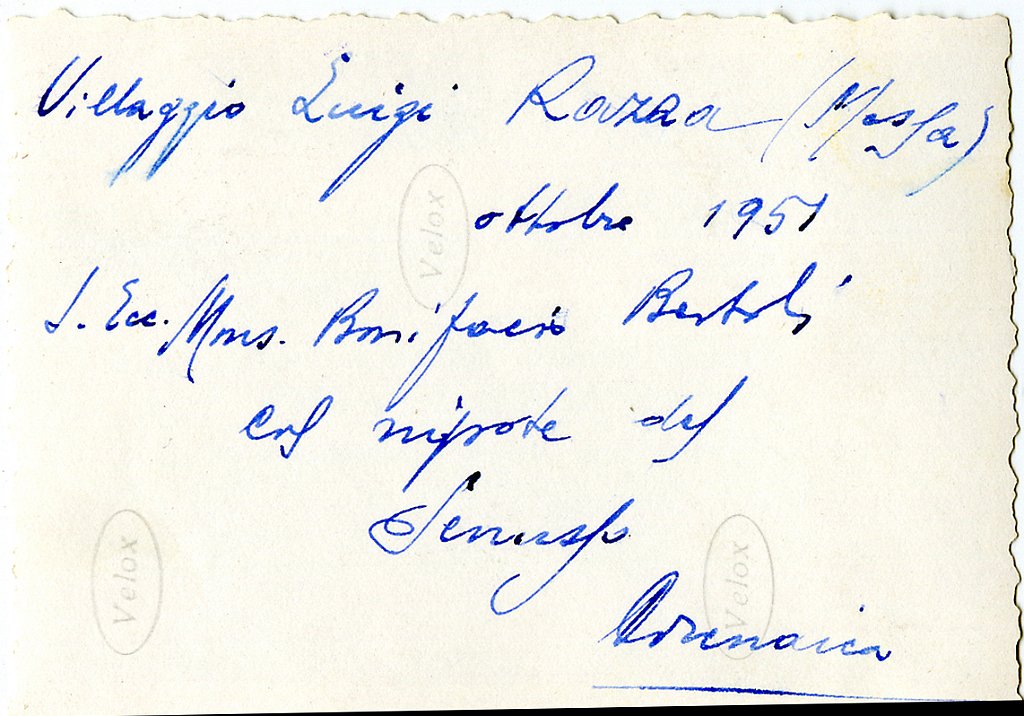 Villaggio Luigi Razza (Messa)
ottobre 1951
S. Ecc. Mons. Bonifacio Bertoli
col nipote del
Senusso
Cirenaica
Velox
Velox
Velox